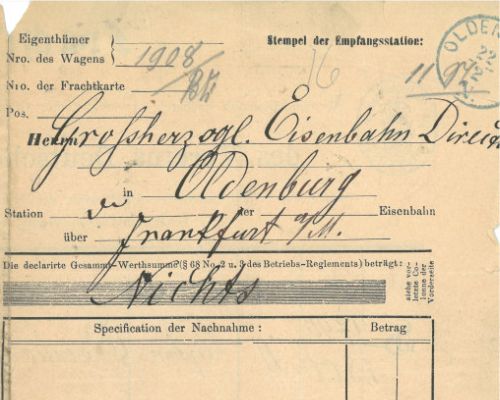 Eigenthümer
Nro. des Wagens 1908
Stempel der Empfangsstation:
OLDEN
22
12
Nro. der Frachtkarte
Pos.
Herrn Grossherzogl. Eisenbahn Direct
in Oldenburg
Station der Eisenbahn
über Frankfurt a/M.
Die declarirte Gesammt-Werthsumme (§ 68 No. 2 u. 3 des Betriebs-Reglements) beträgt:
siehe vor-
letzte Co-
lonne der
Vorderseite
Nichts
Specification der Nachnahme: Betrag